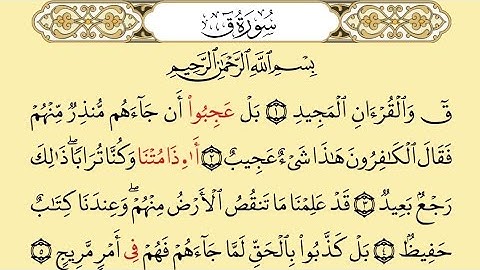 سُورَةُ قٓ
بِسْمِ ٱللَّهِ ٱلرَّحْمَٰنِ ٱلرَّحِيمِ
قٓ وَٱلْقُرْءَانِ ٱلْمَجِيدِ ١ بَلْ عَجِبُوٓا۟ أَن جَآءَهُم مُّنذِرٌ مِّنْهُمْ
فَقَالَ ٱلْكَٰفِرُونَ هَٰذَا شَىْءٌ عَجِيبٌ ٢ أَ.ذَا مُتْنَا وَكُنَّا تُرَابًا ۖ ذَٰلِكَ
رَجْعٌۢ بَعِيدٌ ٣ قَدْ عَلِمْنَا مَا تَنقُصُ ٱلْأَرْضُ مِنْهُمْ ۖ وَعِندَنَا كِتَٰبٌ
حَفِيظٌۢ ٤ بَلْ كَذَّبُوا۟ بِٱلْحَقِّ لَمَّا جَآءَهُمْ فَهُمْ فِىٓ أَمْرٍ مَّرِيجٍ ٥